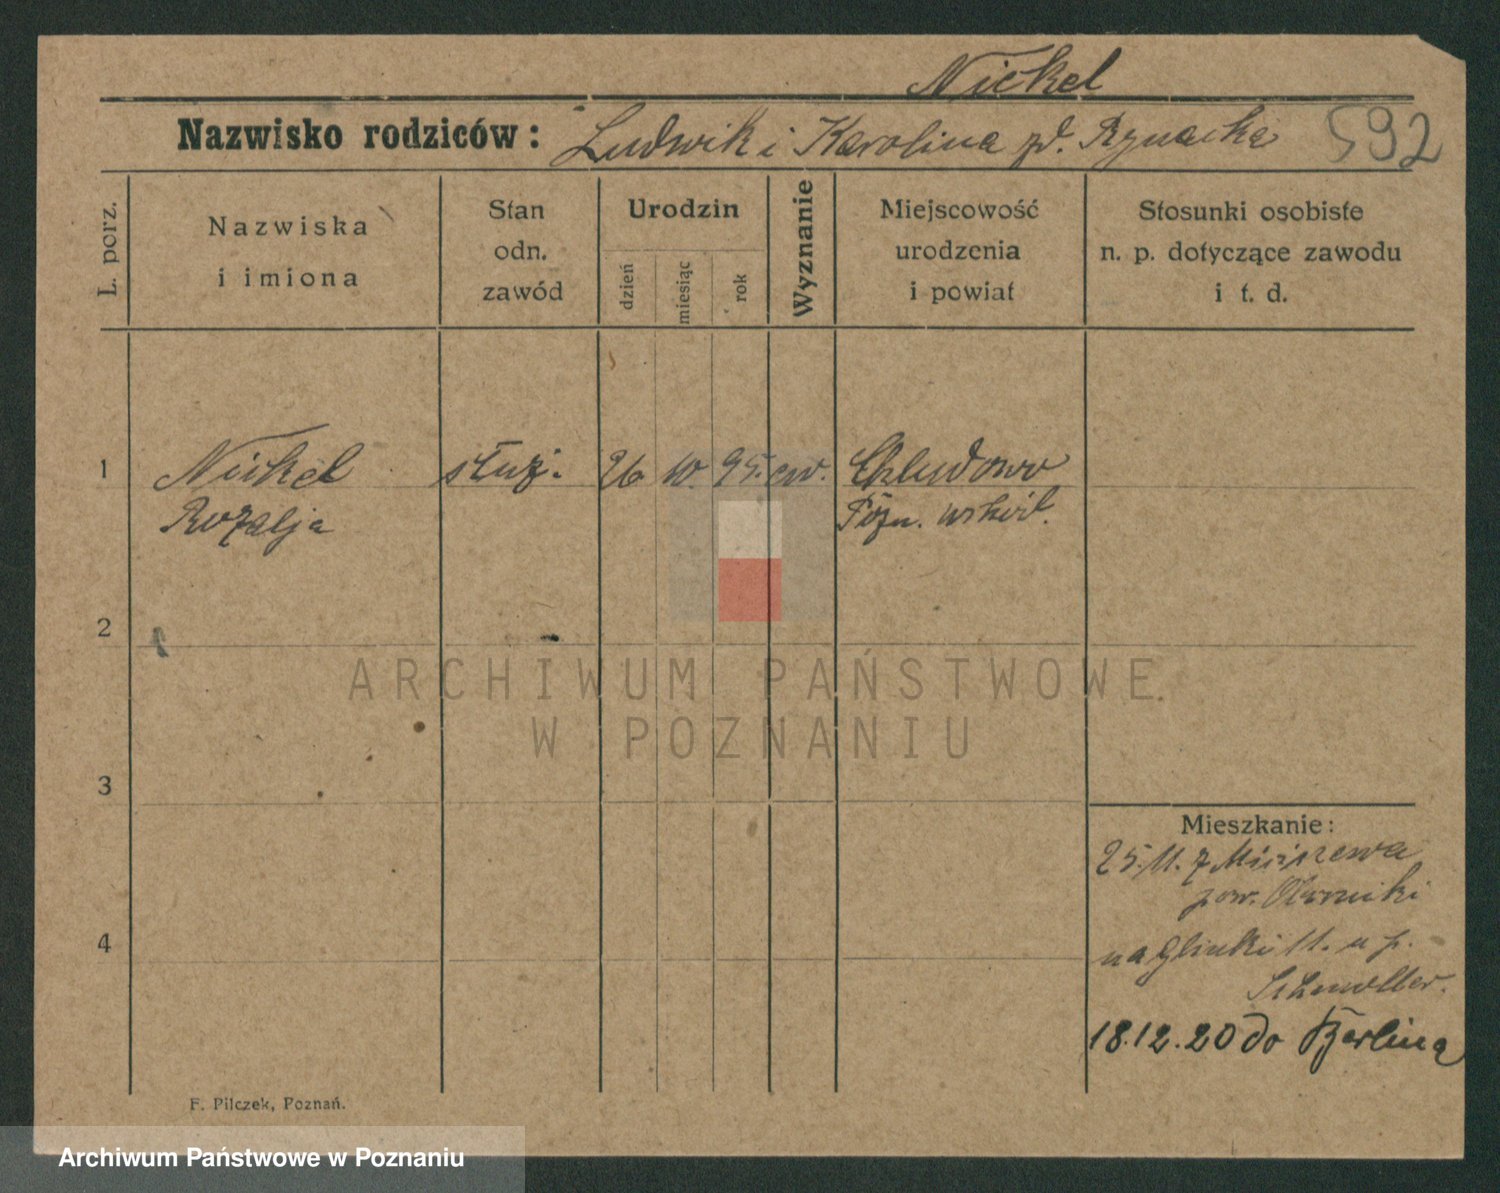 Nickel
Nazwisko rodziców: Ludwik i Karolina zd. Rynacka 592
L. porz.
Nazwiska
i imiona
Stan
odn.
zawód
Urodzin
dzień
miesiąc
rok
Wyznanie
Miejscowość
urodzenia
i powiat
Stosunki osobiste
n. p. dotyczące zawodu
i t. d.
1 Nickel służ. 26 10. 95. ew. Chludowo
Rozalja Pozn. wschód.
2
3
4
Mieszkanie:
25.11. z
pow. Oborniki
na Glinki 11. u p.
18.12.20 do Berlina
F. Pilczek, Poznań.
ARCHIWUM PAŃSTWOWE
W POZNANIU
Archiwum Państwowe w Poznaniu